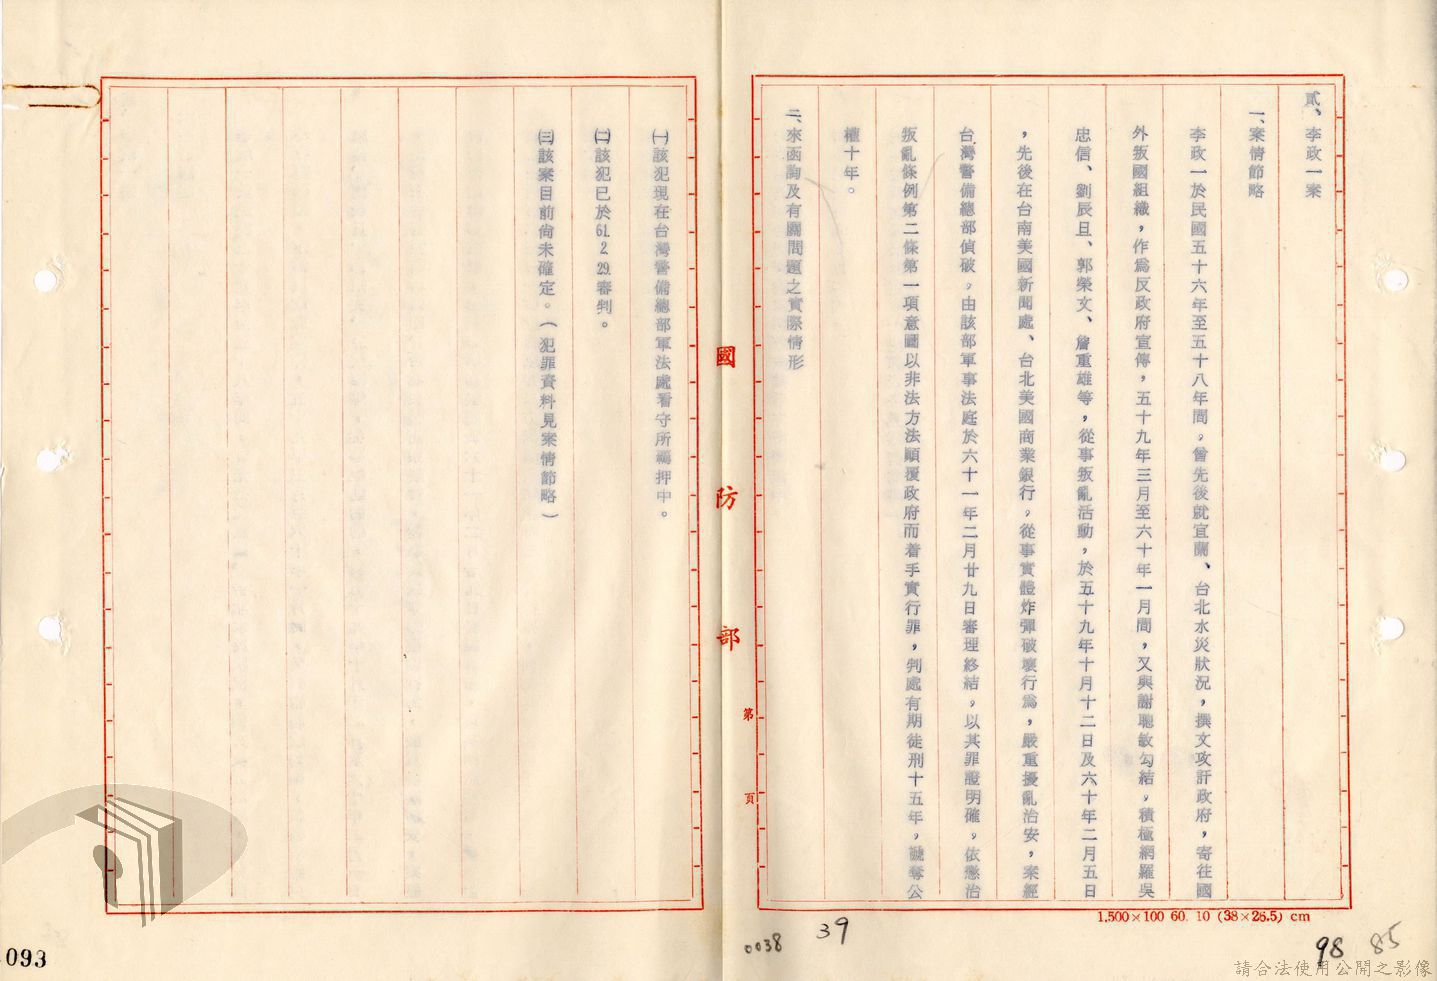 貳、李政一案
一、案情節略
李政一於民國五十六年至五十八年間，曾先後就宜蘭、台北水災狀況，撰文攻訐政府，寄往國
外叛國組織，作為反政府宣傳，五十九年三月至六十年一月間，又與謝聰敏勾結，積極網羅吳
忠信、劉辰旦、郭榮文、詹重雄等，從事叛亂活動，於五十九年十月十二日及六十年二月五日
，先後在台南美國新聞處、台北美國商業銀行，從事實體炸彈破壞行為，嚴重擾亂治安，案經
台灣警備總部偵破，由該部軍事法庭於六十一年二月廿九日審理終結，以其罪證明確，依懲治
叛亂條例第二條第一項意圖以非法方法顛覆政府而着手實行罪，判處有期徒刑十五年，褫奪公
權十年。
二、來函詢及有關問題之實際情形
國防部
第 頁
㈠該犯現在台灣警備總部軍法處看守所羈押中。
㈡該犯已於61.2.29.審判。
㈢該案目前尚未確定。（犯罪資料見案情節略）
1,500×100 60. 10 (38×26.5) cm
0038
39
98
85
093
請合法使用公開之影像